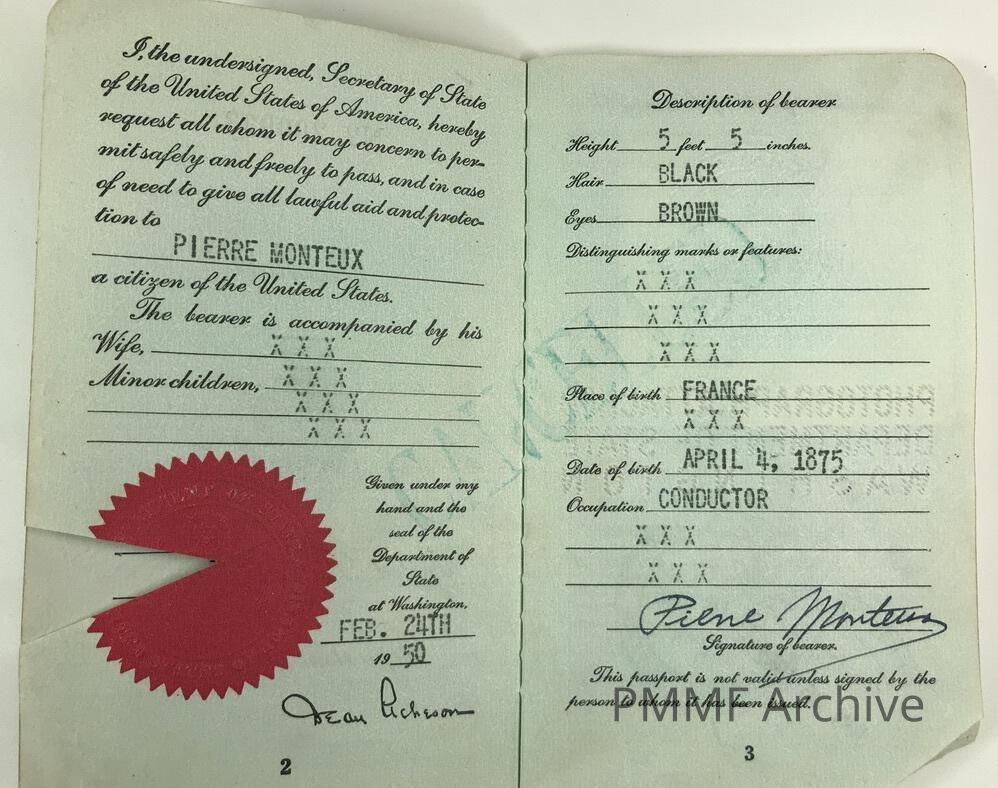 I, the undersigned, Secretary of State
of the United States of America, hereby
request all whom it may concern to per-
mit safely and freely to pass, and in case
of need to give all lawful aid and protec-
tion to
PIERRE MONTEUX
a citizen of the United States.
The bearer is accompanied by his
Wife, X X X
Minor children, X X X
X X X
X X X
Given under my
hand and the
seal of the
Department of
State
at Washington,
FEB. 24TH
19 50
Dean Acheson
2
Description of bearer
Height 5 feet 5 inches.
Hair BLACK
Eyes BROWN
Distinguishing marks or features:
X X X
X X X
X X X
Place of birth FRANCE
X X X
Date of birth APRIL 4, 1875
Occupation CONDUCTOR
X X X
X X X
Pierre Monteux
Signature of bearer.
This passport is not valid unless signed by the
person to whom it has been issued.
PMMF Archive
3